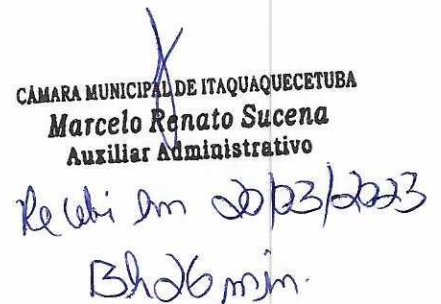 CÂMARA MUNICIPAL DE ITAQUAQUECETUBA
Marcelo Renato Sucena
Auxiliar Administrativo
Recebi em 20/03/2023
13h26min.